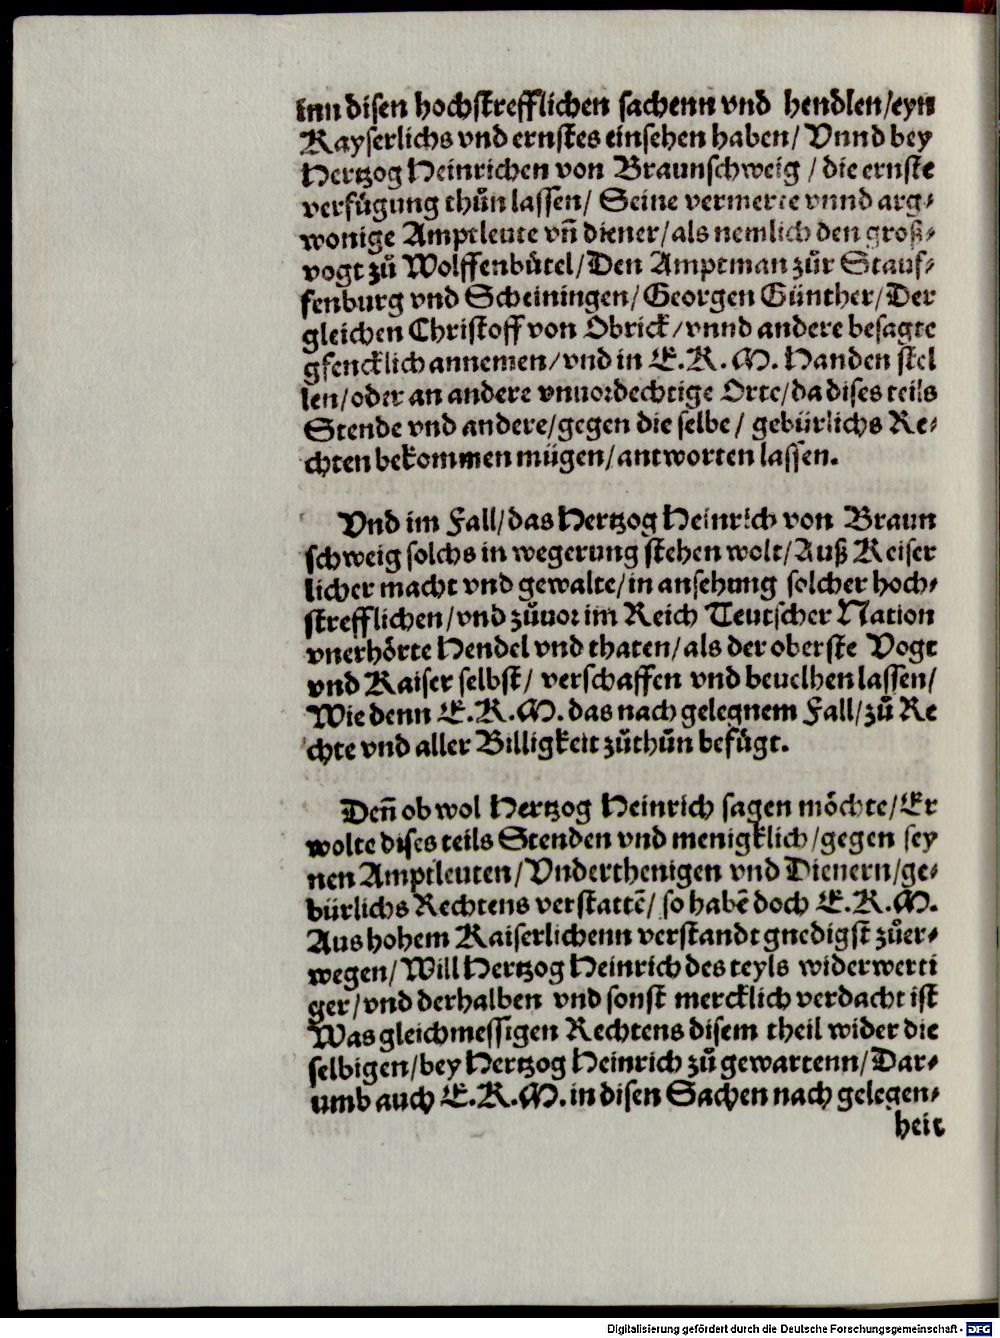 inn disen hochstrefflichen sachenn vnd hendlen/eyn
Kayserlichs vnd ernstes einsehen haben/ Vnnd bey
Hertzog Heinrichen von Braunschweig / die ernste
verfügung thůn lassen/ Seine vermerte vnnd arg⸗
wonige Amptleute vñ diener/als nemlich den groß⸗
vogt zů Wolffenbütel/Den Amptman zůr Stauf⸗
fenburg vnd Scheiningen/Georgen Günther/Der
gleichen Christoff von Obrick/vnnd andere besagte
gfencklich annemen/vnd in E.K.M. Handen stel
len/oder an andere vnuordechtige Orte/da dises teils
Stende vnd andere/gegen die selbe/ gebürlichs Re⸗
chten bekommen mügen/antworten lassen.
Vnd im Fall/das Hertzog Heinrich von Braun
schweig solchs in wegerung stehen wolt/Auß Keiser
licher macht vnd gewalte/in ansehung solcher hoch⸗
strefflichen/vnd zůuor im Reich Teutscher Nation
vnerhörte Hendel vnd thaten/als der oberste Vogt
vnd Kaiser selbst/ verschaffen vnd beuelhen lassen/
Wie denn E.K.M. das nach gelegnem Fall/zů Re
chte vnd aller Billigkeit zůthůn befügt.
Deñ ob wol Hertzog Heinrich sagen möchte/Er
wolte dises teils Stenden vnd menigklich/gegen sey
nen Amptleuten/Vnderthenigen vnd Dienern/ge⸗
bürlichs Rechtens verstattē/ so habē doch E.K.M.
Aus hohem Kaiserlichenn verstandt gnedigst zůer⸗
wegen/Will Hertzog Heinrich des teyls widerwerti
ger/vnd derhalben vnd sonst mercklich verdacht ist
Was gleichmessigen Rechtens disem theil wider die
selbigen/bey Hertzog Heinrich zů gewartenn/Dar⸗
umb auch E.K.M. in disen Sachen nach gelegen⸗
heit
Digitalisierung gefördert durch die Deutsche Forschungsgemeinschaft - DFG